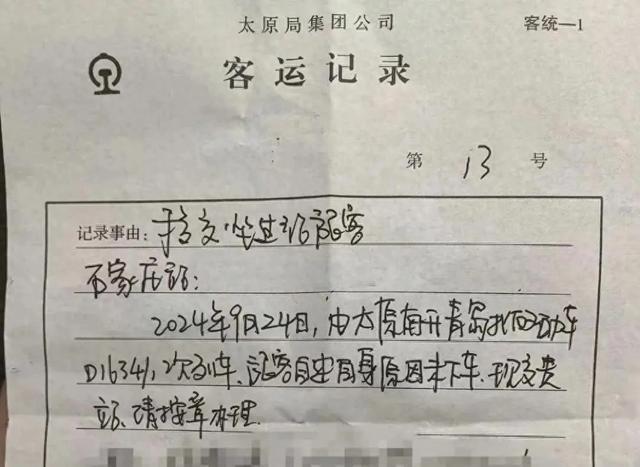 太原局集团公司
客统—1
客运记录
第 13 号
记录事由: 移交坐过站旅客
石家庄站:
2024年9月24日,由太原南开青岛北的动车
D1634/1次列车、旅客自述自身原因未下车、现交贵
站、请按章办理.